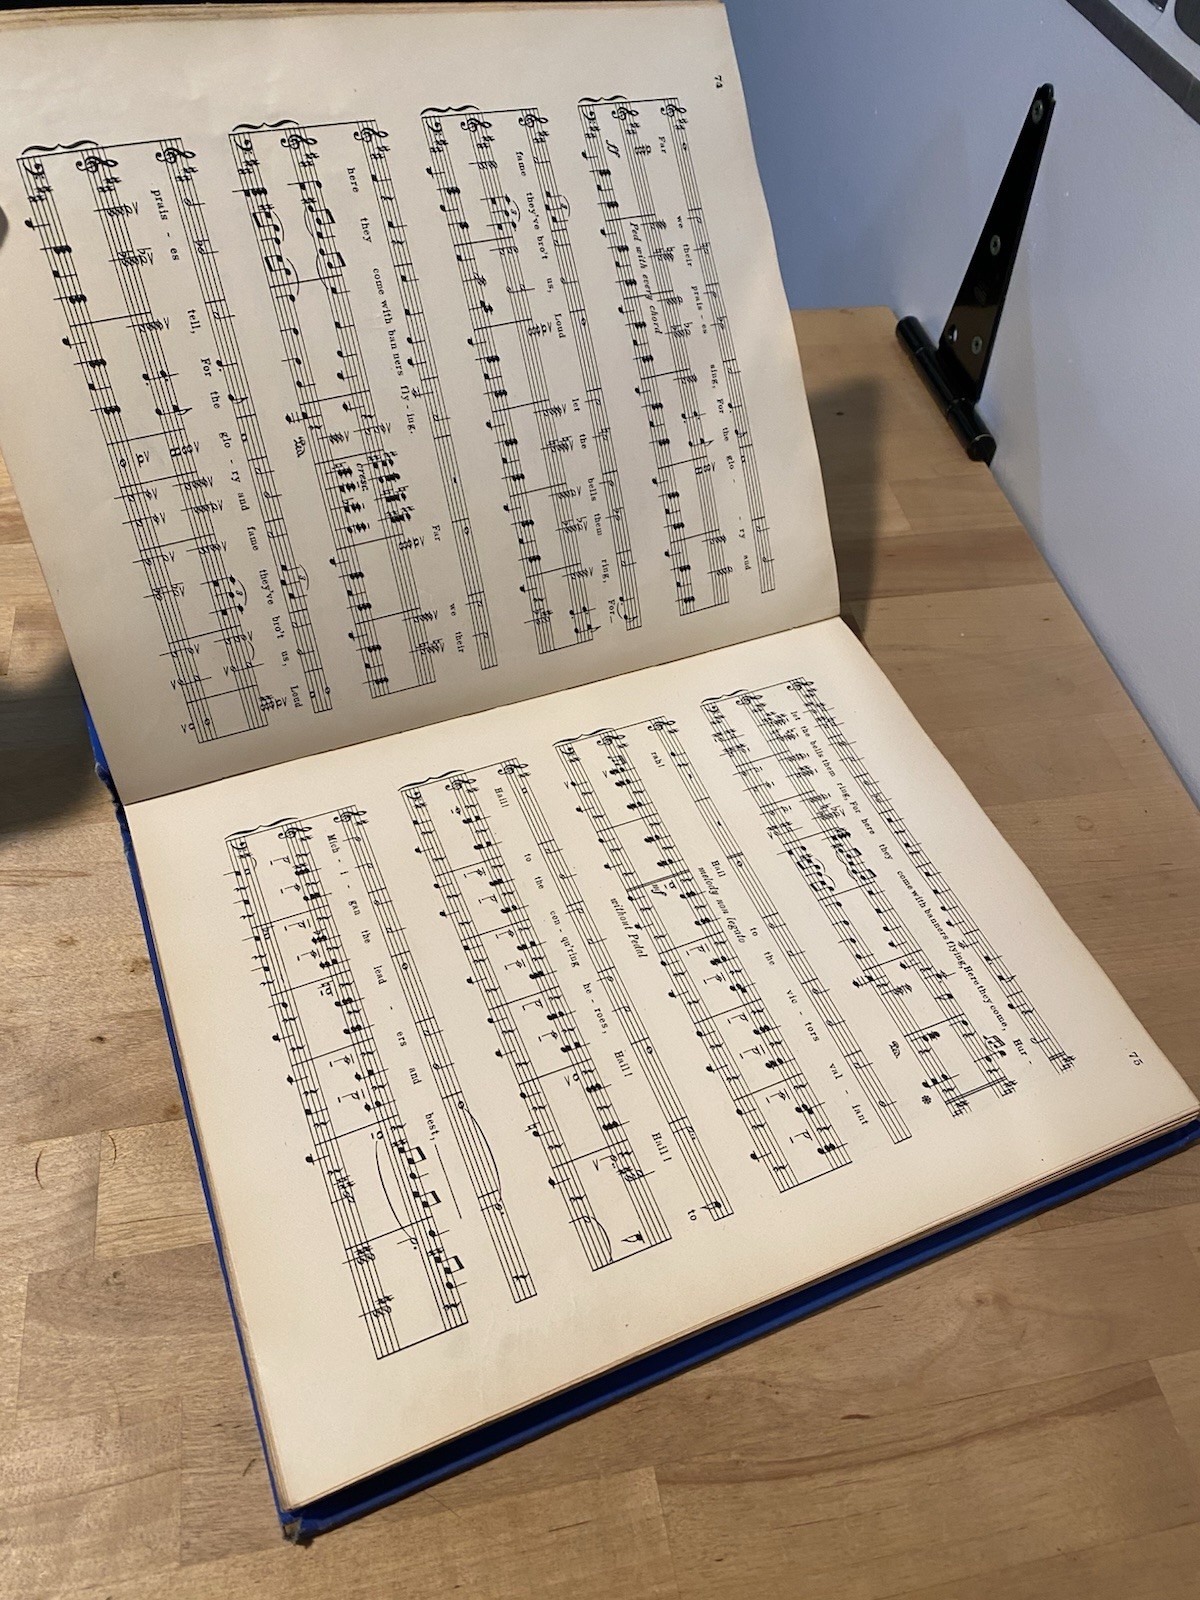 74
Far we their prais - es sing, For the glo - - ry and
ff
Ped with every chord
fame they've bro't us, Loud let the bells them ring, For_
here they come with ban ners fly - ing. Far we their
cresc.
prais - es tell, For the glo - ry and fame they've bro't us, Loud
75
let the bells them ring, For here they come with banners flying, Here they come, Hur -
rah! Hail to the vic - tors val - iant
melody non legato
mf
without Pedal
Hail! to the con - qu'ring he - roes, Hail! Hail! to
Mich - i - gan the lead - ers and best,